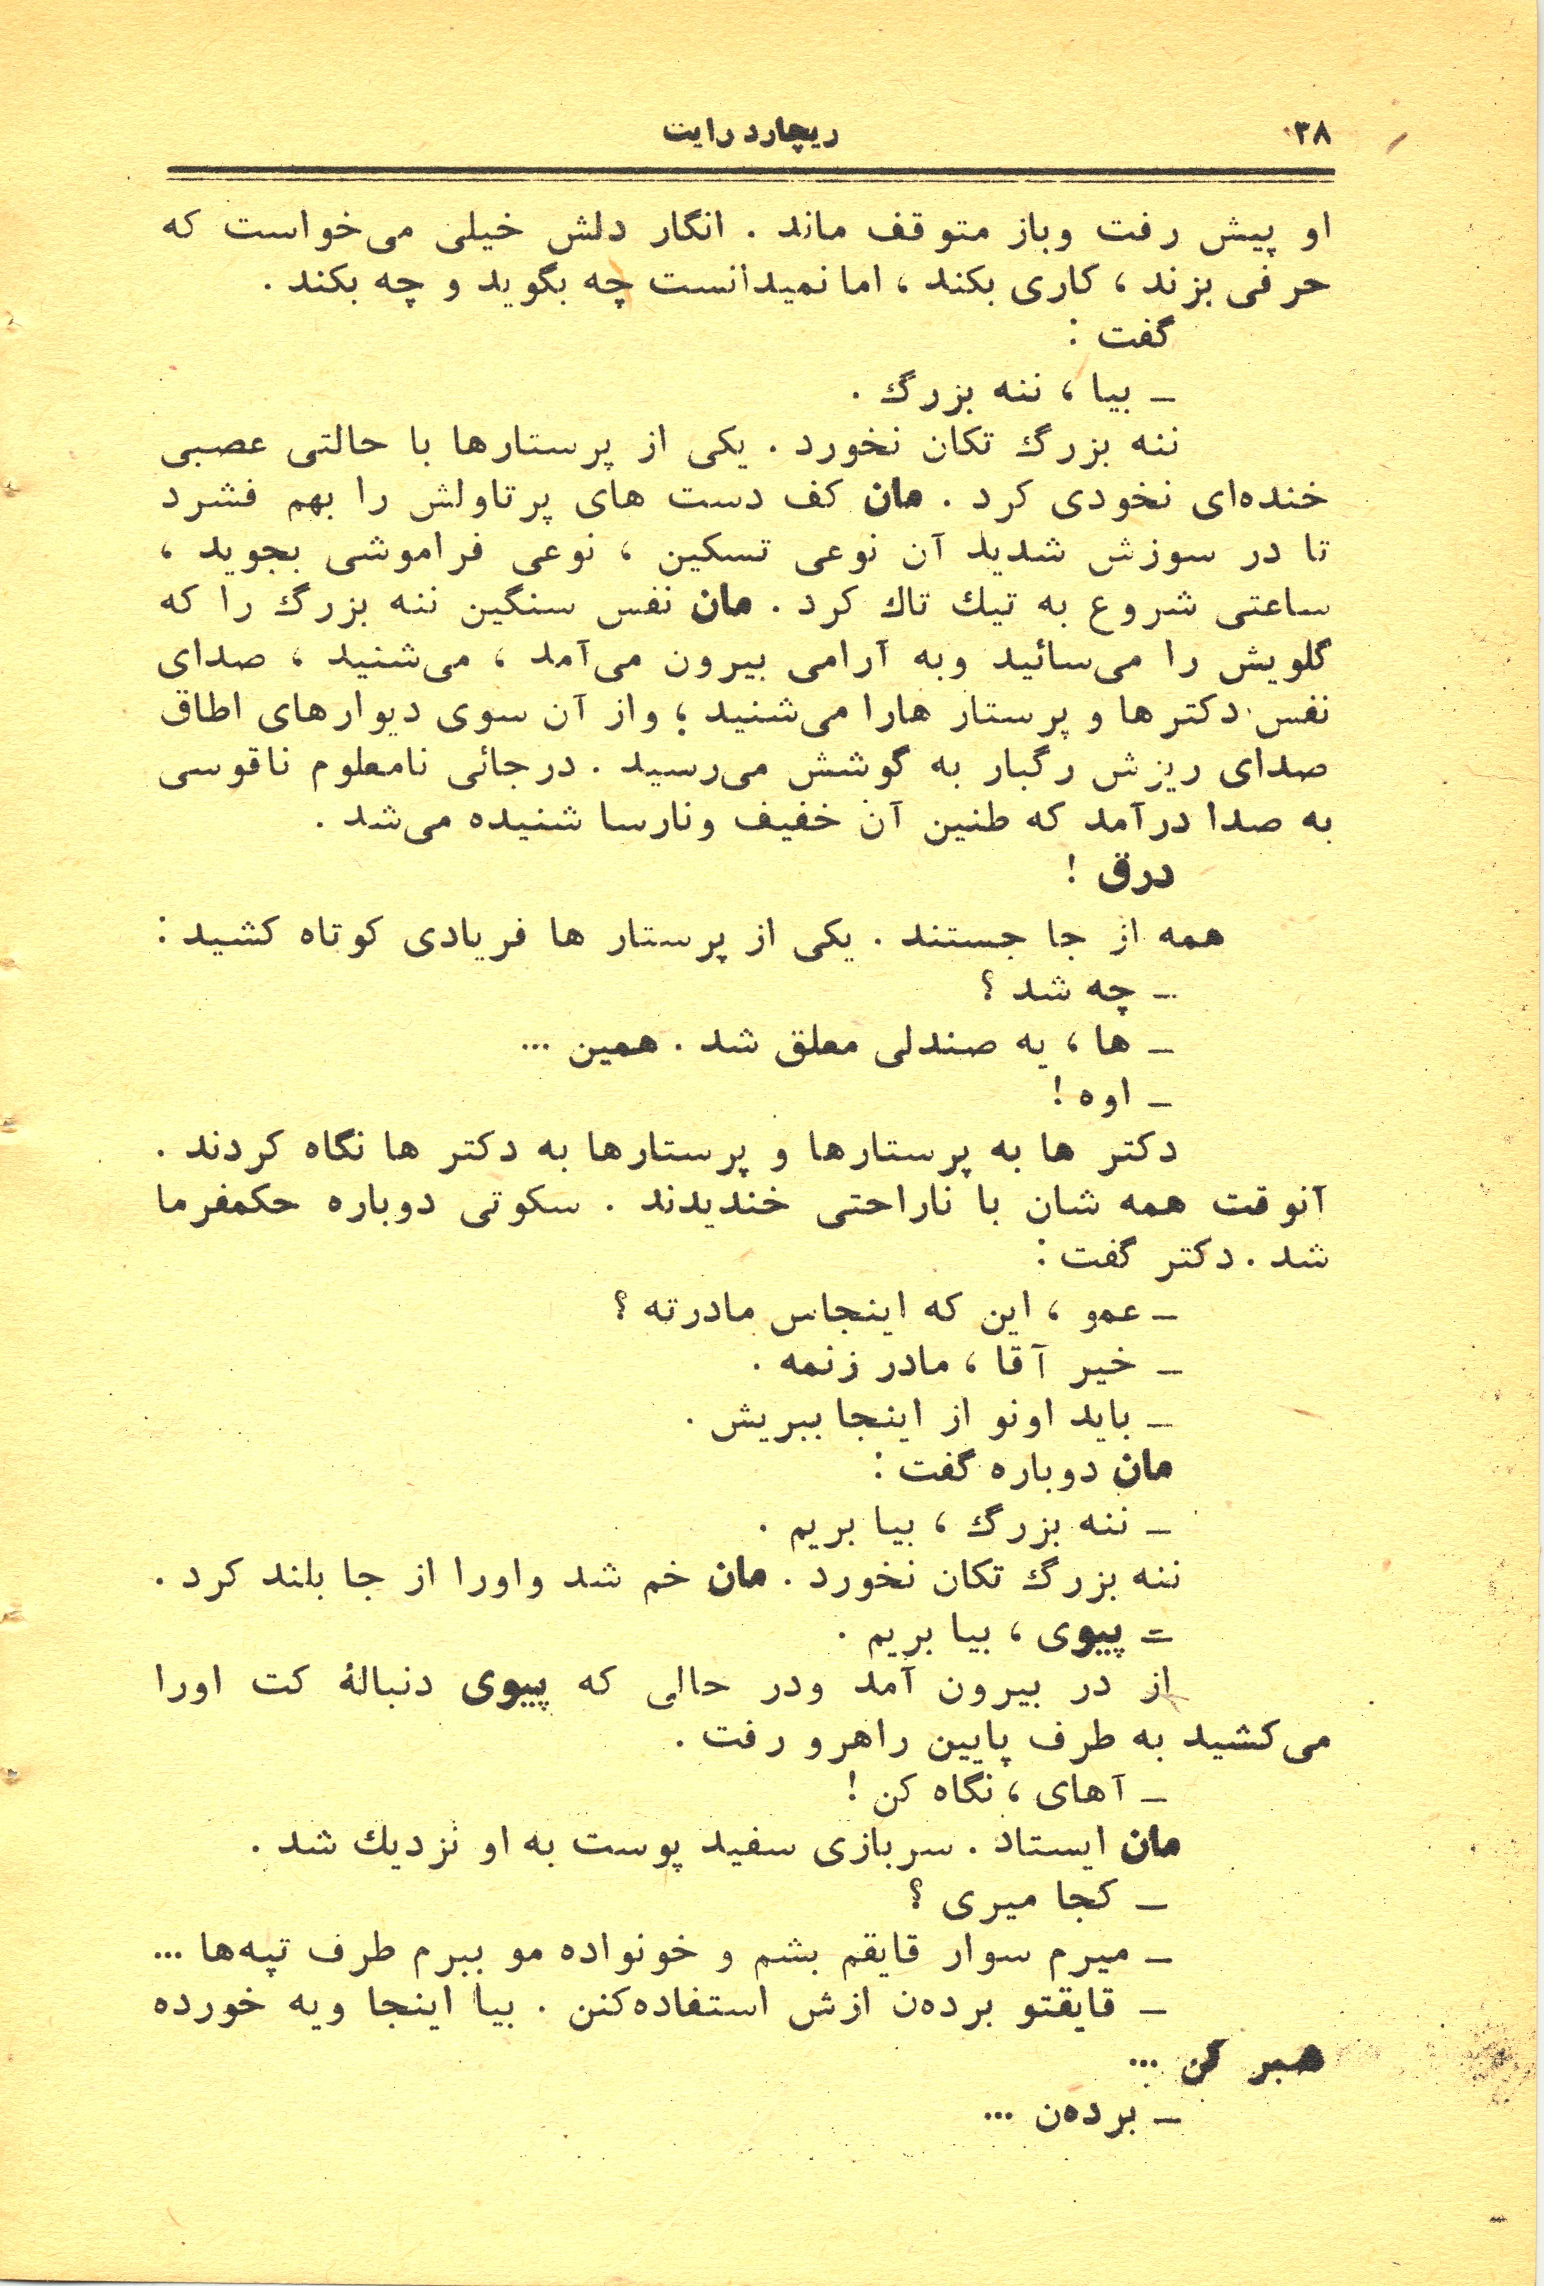 ۳۸
ریچارد رایت
او پیش رفت وباز متوقف ماند . انگار دلش خیلی می‌خواست که
حرفی بزند ، کاری بکند ، اما نمیدانست چه بگوید و چه بکند .
گفت :
ـ بیا ، ننه بزرگ .
ننه بزرگ تکان نخورد . یکی از پرستارها با حالتی عصبی
خنده‌ای نخودی کرد . مان کف دست های پرتاولش را بهم فشرد
تا در سوزش شدید آن نوعی تسکین ، نوعی فراموشی بجوید ،
ساعتی شروع به تیك تاك کرد . مان نفس سنگین ننه بزرگ را که
گلویش را می‌سائید وبه آرامی بیرون می‌آمد ، می‌شنید ، صدای
نفس دکترها و پرستار هارا می‌شنید ؛ واز آن سوی دیوارهای اطاق
صدای ریزش رگبار به گوشش می‌رسید . درجائی نامعلوم ناقوسی
به صدا درآمد که طنین آن خفیف ونارسا شنیده می‌شد .
درق !
همه از جا جستند . یکی از پرستار ها فریادی کوتاه کشید :
ـ چه شد ؟
ـ ها ، یه صندلی معلق شد . همین ...
ـ اوه !
دکتر ها به پرستارها و پرستارها به دکتر ها نگاه کردند .
آنوقت همه شان با ناراحتی خندیدند . سکوتی دوباره حکمفرما
شد . دکتر گفت :
ـ عمو ، این که اینجاس مادرته ؟
ـ خیر آقا ، مادر زنمه .
ـ باید اونو از اینجا ببریش .
مان دوباره گفت :
ـ ننه بزرگ ، بیا بریم .
ننه بزرگ تکان نخورد . مان خم شد واورا از جا بلند کرد .
ـ پیوی ، بیا بریم .
از در بیرون آمد ودر حالی که پیوی دنبالهٔ کت اورا
می‌کشید به طرف پایین راهرو رفت .
ـ آهای ، نگاه کن !
مان ایستاد . سربازی سفید پوست به او نزدیك شد .
ـ کجا میری ؟
ـ میرم سوار قایقم بشم و خونواده مو ببرم طرف تپه‌ها ...
ـ قایقتو برده‌ن ازش استفاده‌کنن . بیا اینجا ویه خورده
صبر کن ...
ـ برده‌ن ...